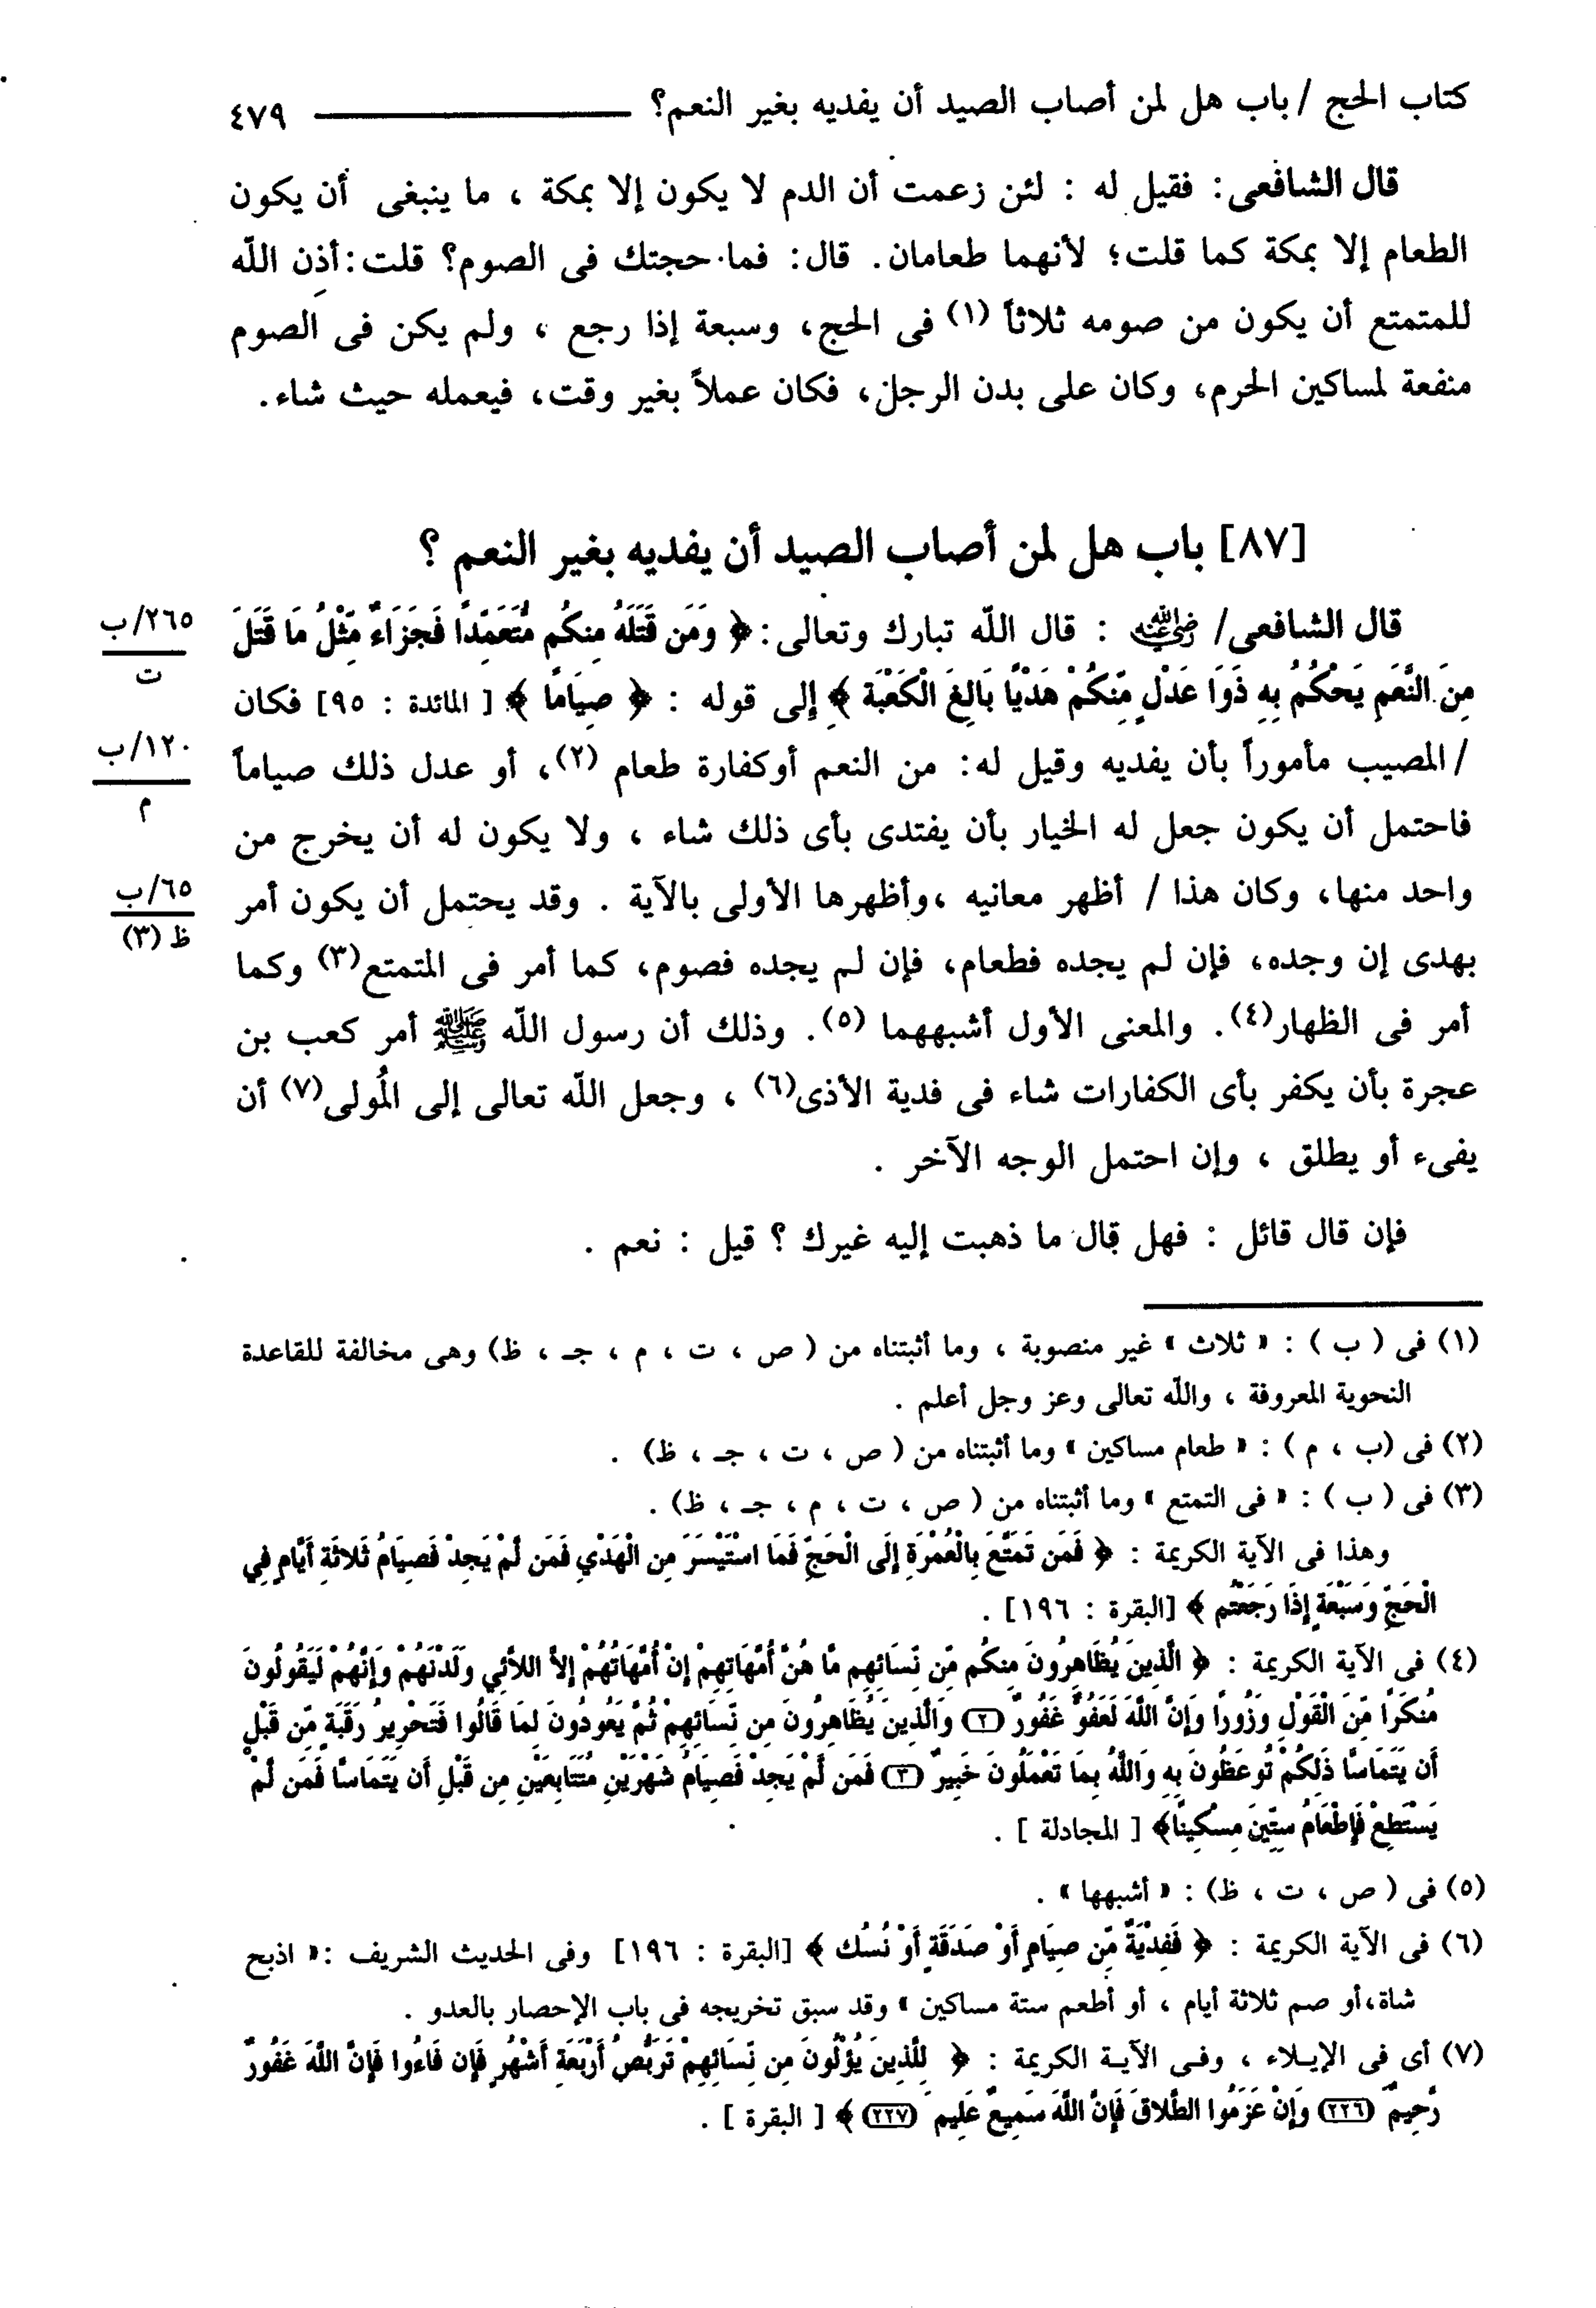 كتاب الحج / باب هل لمن أصاب الصيد أن يفديه بغير النعم؟ ٤٧٩
قال الشافعى: فقيل له : لئن زعمت أن الدم لا يكون إلا بمكة ، ما ينبغى أن يكون
الطعام إلا بمكة كما قلت؛ لأنهما طعامان. قال: فما حجتك فى الصوم؟ قلت: أذِن اللّه
للمتمتع أن يكون من صومه ثلاثاً (١) فى الحج، وسبعة إذا رجع ، ولم يكن فى الصوم
منفعة لمساكين الحرم، وكان على بدن الرجل، فكان عملاً بغير وقت، فيعمله حيث شاء.
[٨٧] باب هل لمن أصاب الصيد أن يفديه بغير النعم ؟
قال الشافعى/ رضي الله عنه : قال اللّه تبارك وتعالى: ﴿ وَمَن قَتَلَهُ مِنكُم مُّتَعَمِّدًا فَجَزَاءٌ مِّثْلُ مَا قَتَلَ
٢٦٥/ب
ت
مِنَ النَّعَمِ يَحْكُمُ بِهِ ذَوَا عَدْلٍ مِّنكُمْ هَدْيًا بَالِغَ الْكَعْبَةِ ﴾ إلى قوله : ﴿ صِيَامًا ﴾ [ المائدة : ٩٥] فكان
/ المصيب مأموراً بأن يفديه وقيل له: من النعم أوكفارة طعام (٢)، أو عدل ذلك صياماً
١٢٠/ب
م
فاحتمل أن يكون جعل له الخيار بأن يفتدى بأى ذلك شاء ، ولا يكون له أن يخرج من
واحد منها، وكان هذا / أظهر معانيه ،وأظهرها الأولى بالآية . وقد يحتمل أن يكون أمر
٦٥/ب
ظ (٣)
بهدى إن وجده، فإن لم يجده فطعام، فإن لم يجده فصوم، كما أمر فى المتمتع(٣) وكما
أمر فى الظهار(٤). والمعنى الأول أشبههما (٥). وذلك أن رسول اللّه ﷺ أمر كعب بن
عجرة بأن يكفر بأى الكفارات شاء فى فدية الأذى(٦) ، وجعل اللّه تعالى إلى المُولى(٧) أن
يفىء أو يطلق ، وإن احتمل الوجه الآخر .
فإن قال قائل : فهل قال ما ذهبت إليه غيرك ؟ قيل : نعم .
(١) فى ( ب ) : « ثلاث » غير منصوبة ، وما أثبتناه من ( ص ، ت ، م ، جـ ، ظ) وهى مخالفة للقاعدة
النحوية المعروفة ، واللّه تعالى وعز وجل أعلم .
(٢) فى (ب ، م ) : « طعام مساكين » وما أثبتناه من ( ص ، ت ، جـ ، ظ) .
(٣) فى ( ب ) : « فى التمتع » وما أثبتناه من ( ص ، ت ، م ، جـ ، ظ) .
وهذا فى الآية الكريمة : ﴿ فَمَن تَمَتَّعَ بِالْعُمْرَةِ إِلَى الْحَجِّ فَمَا اسْتَيْسَرَ مِنَ الْهَدْيِ فَمَن لَّمْ يَجِدْ فَصِيَامُ ثَلاثَةِ أَيَّامٍ فِي
الْحَجِّ وَسَبْعَةٍ إِذَا رَجَعْتُم ﴾ [البقرة : ١٩٦] .
(٤) فى الآية الكريمة : ﴿ الَّذِينَ يُظَاهِرُونَ مِنكُم مِّن نِّسَائِهِم مَّا هُنَّ أُمَّهَاتِهِمْ إِنْ أُمَّهَاتُهُمْ إِلاَّ اللاَّئِي وَلَدْنَهُمْ وَإِنَّهُمْ لَيَقُولُونَ
مُنكَرًا مِّنَ الْقَوْلِ وَزُورًا وَإِنَّ اللَّهَ لَعَفُوٌّ غَفُورٌ (٢) وَالَّذِينَ يُظَاهِرُونَ مِن نِّسَائِهِمْ ثُمَّ يَعُودُونَ لِمَا قَالُوا فَتَحْرِيرُ رَقَبَةٍ مِّن قَبْلِ
أَن يَتَمَاسَّا ذَلِكُمْ تُوعَظُونَ بِهِ وَاللَّهُ بِمَا تَعْمَلُونَ خَبِيرٌ (٣) فَمَن لَّمْ يَجِدْ فَصِيَامُ شَهْرَيْنِ مُتَتَابِعَيْنِ مِن قَبْلِ أَن يَتَمَاسَّا فَمَن لَّمْ
يَسْتَطِعْ فَإِطْعَامُ سِتِّينَ مِسْكِينًا﴾ [ المجادلة ] .
(٥) فى ( ص ، ت ، ظ) : « أشبهها » .
(٦) فى الآية الكريمة : ﴿ فَفِدْيَةٌ مِّن صِيَامٍ أَوْ صَدَقَةٍ أَوْ نُسُك ﴾ [البقرة : ١٩٦] وفى الحديث الشريف :« اذبح
شاة،أو صم ثلاثة أيام ، أو أطعم ستة مساكين » وقد سبق تخريجه فى باب الإحصار بالعدو .
(٧) أى فى الإيـلاء ، وفـى الآيـة الكريمة : ﴿ لِلَّذِينَ يُؤْلُونَ مِن نِّسَائِهِمْ تَرَبُّصُ أَرْبَعَةِ أَشْهُرٍ فَإِن فَاءُوا فَإِنَّ اللَّهَ غَفُورٌ
رَّحِيمٌ (٢٢٦) وَإِنْ عَزَمُوا الطَّلاقَ فَإِنَّ اللَّهَ سَمِيعٌ عَلِيم (٢٢٧) ﴾ [ البقرة ] .